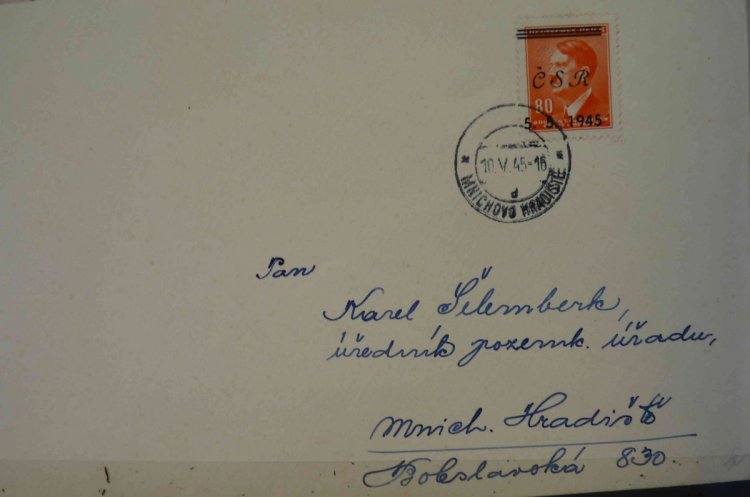 ČSR
80
5. 5. 1945
10.V.45-16
d
MNICHOVO HRADIŠTĚ
Pan
Karel Šelemberk,
úředník pozemk. úřadu,
Mnich. Hradiště
830.